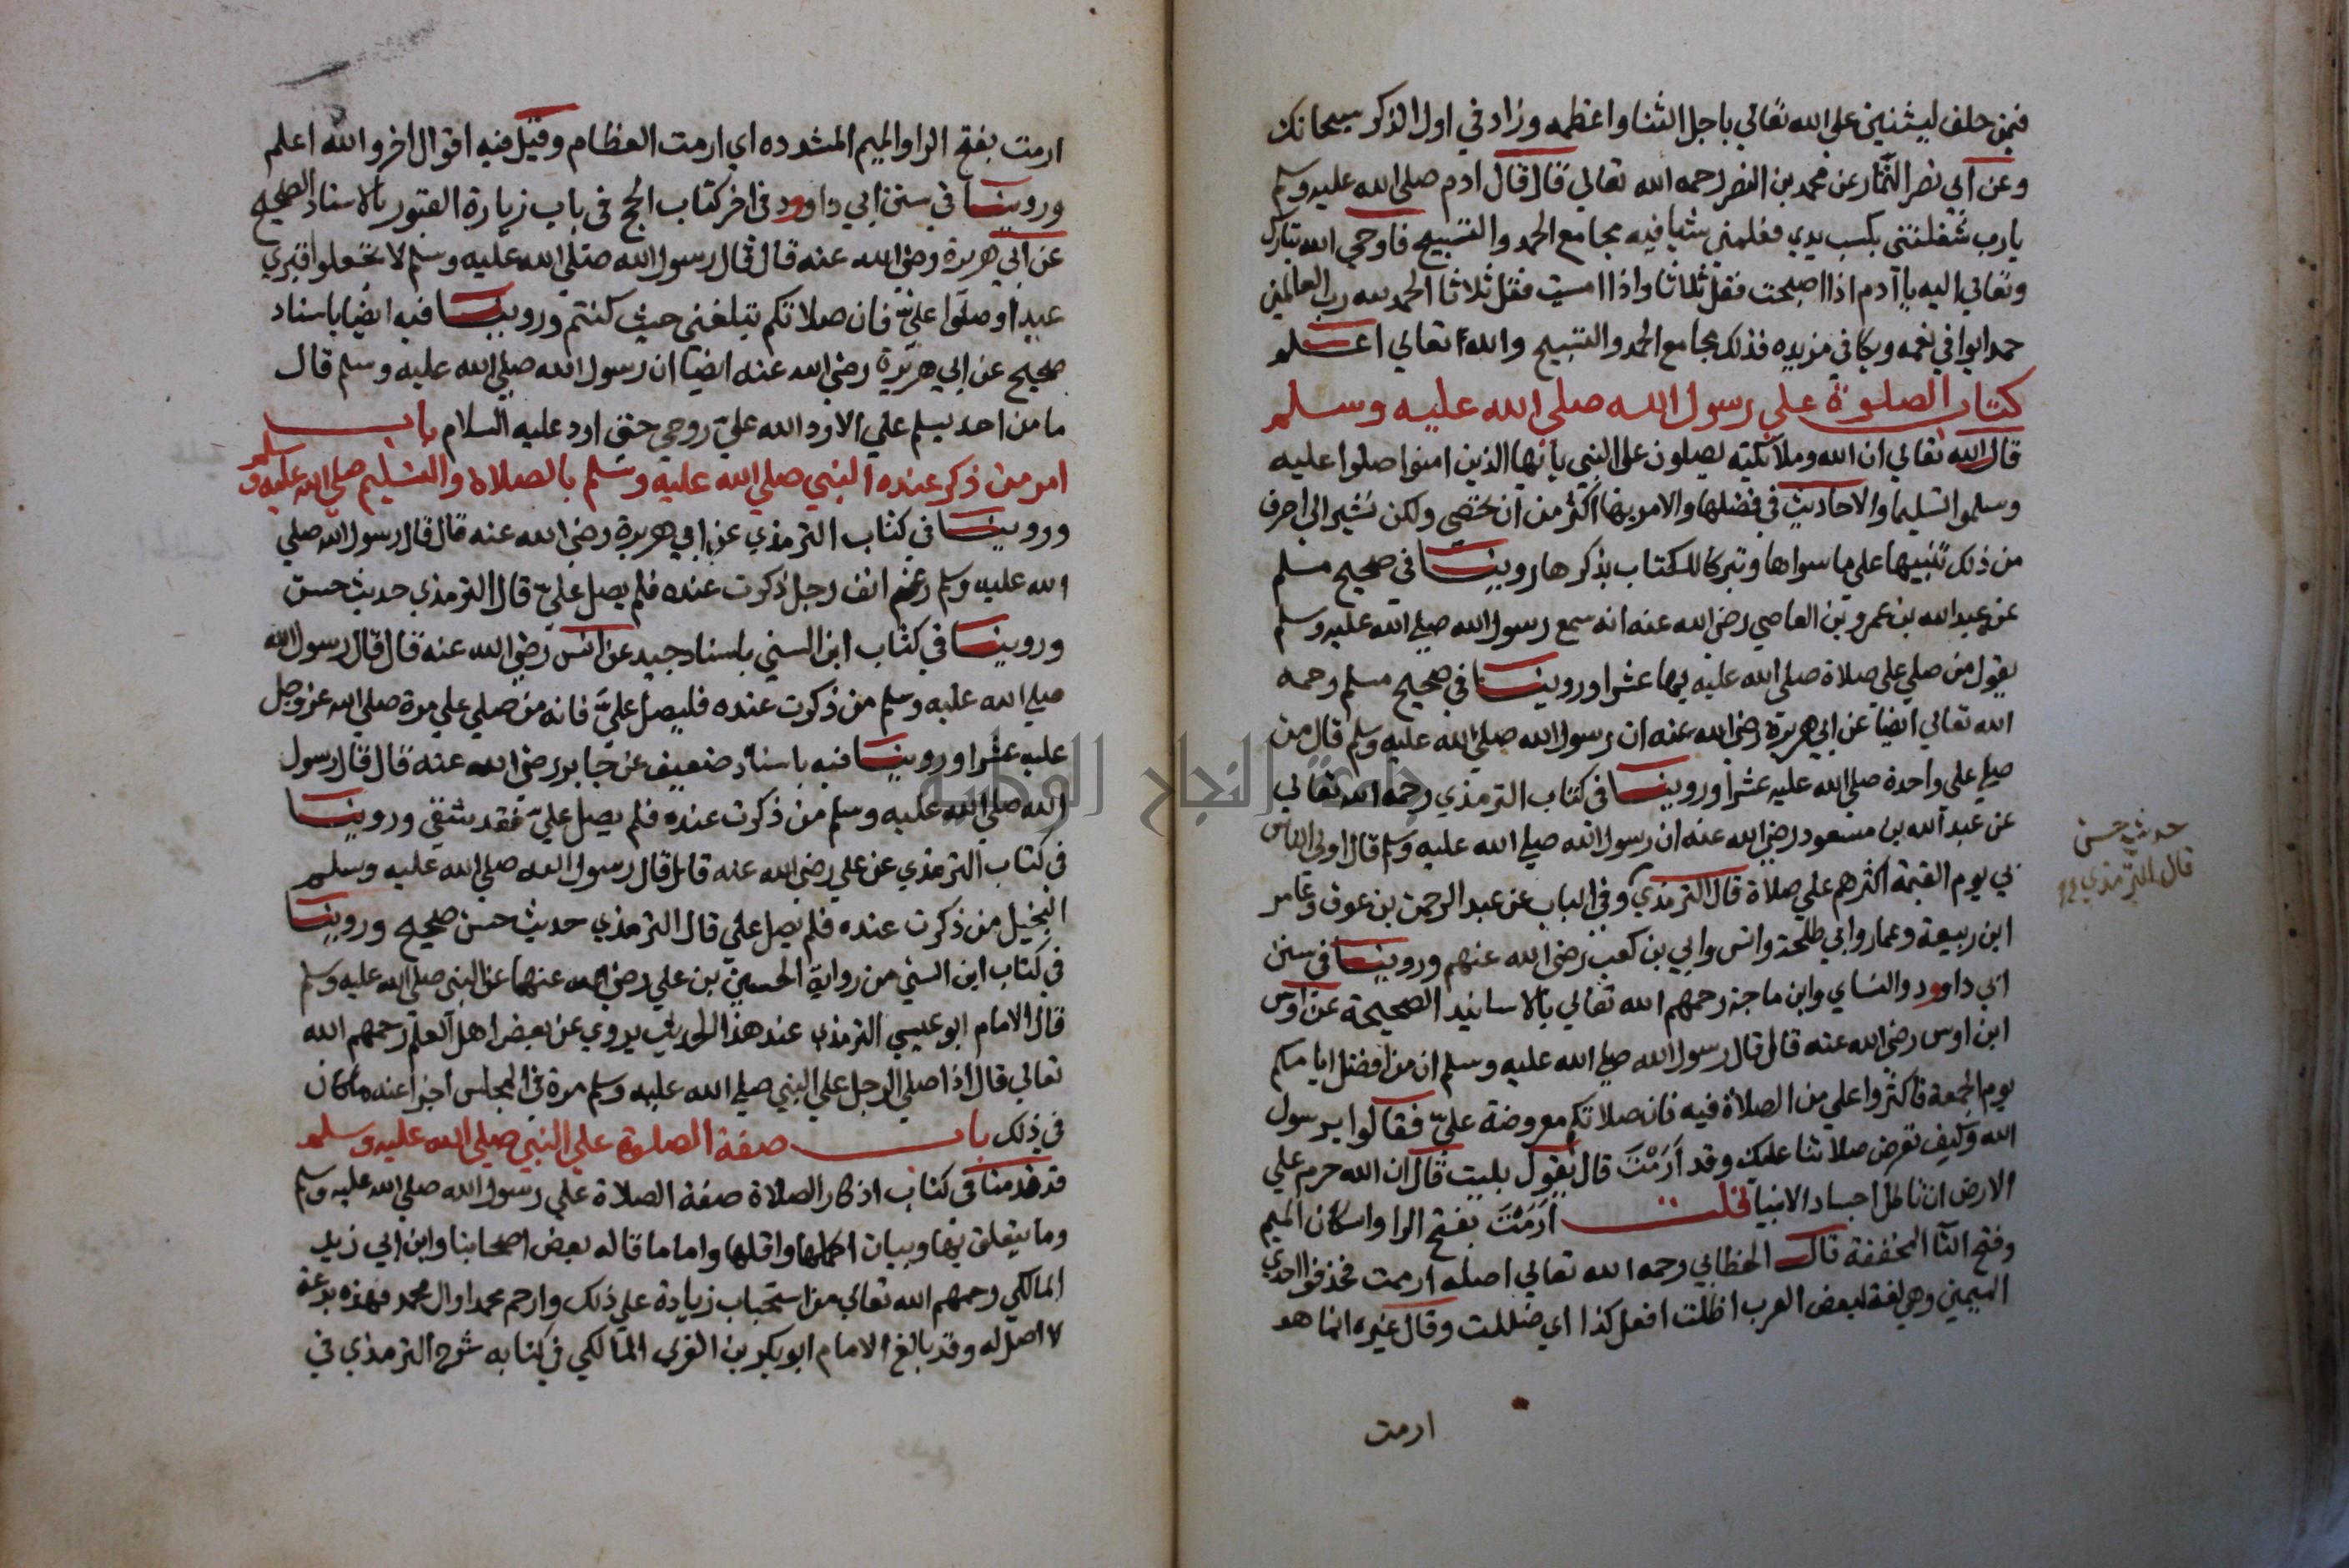 فيمن حلف ليثنين على الله تعالي باجل الثنا واعظمه وزاد في اول الذكر سبحانك
وعن ابي نصر التمار عن محمد بن النضر رحمه الله تعالي قال قال ادم صلى الله عليه وسلم
يارب شغلتني بكسب يدي فعلمني شيا فيه مجامع الحمد والتسبيح فاوحي الله تبارك
وتعالي اليه ياآدم اذا اصبحت فقل ثلاثا واذا امسيت فقل ثلاثا الحمد لله رب العالمين
حمدا يوافي نعمه ويكافي مزيده فذلك مجامع الحمد والتسبيح والله تعالي اعلم
كتاب الصلوة علي رسول الله صلى الله عليه وسلم
قال الله تعالي ان الله وملائكته يصلون على النبي يأيها الذين امنوا صلوا عليه
وسلموا تسليما والاحاديث في فضلها والامر بها اكثر من ان تحصي ولكن نشير الى احرف
من ذلك تنبيها علي ما سواها وتبركا للكتاب بذكرها روينا في صحيح مسلم
عن عبد الله بن عمرو بن العاصي رضي الله عنه انه سمع رسول الله صلي الله عليه وسلم
يقول من صلي علي صلاة صلى الله عليه بها عشرا وروينا في صحيح مسلم رحمه
الله تعالي ايضا عن ابي هريرة رضي الله عنه ان رسول الله صلي الله عليه وسلم قال من
صلي علي واحدة صلي الله عليه عشرا وروينا في كتاب الترمذي رحمه الله تعالي
عن عبد الله بن مسعود رضي الله عنه ان رسول الله صلي الله عليه وسلم قال اولى الناس
بي يوم القيمة اكثرهم علي صلاة قال الترمذي وفي الباب عن عبد الرحمن بن عوف وعامر
حديث حسن
قال الترمذي
ابن ربيعة وعمار وابي طلحة وانس وابي بن كعب رضي الله عنهم وروينا في سنن
ابي داوود والنساي وابن ماجة رحمهم الله تعالي بالاسانيد الصحيحة عن اوس
ابن اوس رضي الله عنه قال قال رسول الله صلي الله عليه وسلم ان من افضل ايامكم
يوم الجمعة فاكثروا علي من الصلاة فيه فان صلاتكم معروضة عليّ فقالوا يرسول
الله وكيف تعرض صلاتنا عليك وقد اَرَمْتَ قال يقول بليت قال ان الله حرم علي
الارض ان تاكل اجساد الانبيا قلت اَرَمْتَ بفتح الرا واسكان الميم
وفتح التآ المخففة قال الخطابي رحمه الله تعالي اصله ارممت فحذفوا احدي
الميمين وهي لغة لبعض العرب اظلت افعل كذا اي ضللت وقال غيره انما هو
ارمت
ارمت بفتح الرا والميم المشدده اي ارمت العظام وقيل فيه اقوال اخر والله اعلم
وروينا في سنن ابي داوود في اخر كتاب الحج في باب زيارة القبور بالاسناد الصحيح
عن ابي هريرة رضي الله عنه قال قال رسول الله صلي الله عليه وسلم لا تجعلوا قبري
عيدا وصلّوا عليّ فان صلاتكم تبلغني حيث كنتم وروينا فيه ايضا باسناد
صحيح عن ابي هريرة رضي الله عنه ايضا ان رسول الله صلي الله عليه وسلم قال
ما من احد يسلم علي الا رد الله عليّ روحي حتى ارد عليه السلام باب
امر من ذكر عنده النبي صلي الله عليه وسلم بالصلاة والتسليم صلي الله عليه وسلم
وروينا في كتاب الترمذي عن ابي هريرة رضي الله عنه قال قال رسول الله صلي
الله عليه وسلم رغم انف رجل ذكرت عنده فلم يصل عليّ قال الترمذي حديث حسن
وروينا في كتاب ابن السني باسناد جيد عن انس رضي الله عنه قال قال رسول الله
صلي الله عليه وسلم من ذكرت عنده فليصل عليّ فانه من صلي علي مرة صلي الله عز وجل
عليه عشرا وروينا فيه باسناد ضعيف عن جابر رضي الله عنه قال قال رسول
الله صلي الله عليه وسلم من ذكرت عنده فلم يصل عليّ فقد شقي وروينا
في كتاب الترمذي عن علي رضي الله عنه قال قال رسول الله صلي الله عليه وسلم
البخيل من ذكرت عنده فلم يصل علي قال الترمذي حديث حسن صحيح وروينا
في كتاب ابن السني من رواية الحسين بن علي رضي الله عنهما عن النبي صلي الله عليه وسلم
قال الامام ابو عيسي الترمذي عند هذا الحديث يروي عن بعض اهل العلم رحمهم الله
تعالي قال اذا صلي الرجل علي النبي صلي الله عليه وسلم مرة في المجلس اجزا عنه ما كان
في ذلك باب صفة الصلوة علي النبي صلي الله عليه وسلم
قد قدمنا في كتاب اذكار الصلاة صفة الصلاة علي رسول الله صلي الله عليه وسلم
وما يتعلق بها وبيان اكملها واقلها واما ما قاله بعض اصحابنا وابن ابي زيد
المالكي رحمهم الله تعالي من استحباب زيادة علي ذلك وارحم محمدا وال محمد فهذه بدعة
لا اصل له وقد بالغ الامام ابو بكر بن العربي المالكي في كتابه شرح الترمذي في
جامعة النجاح الوطنية